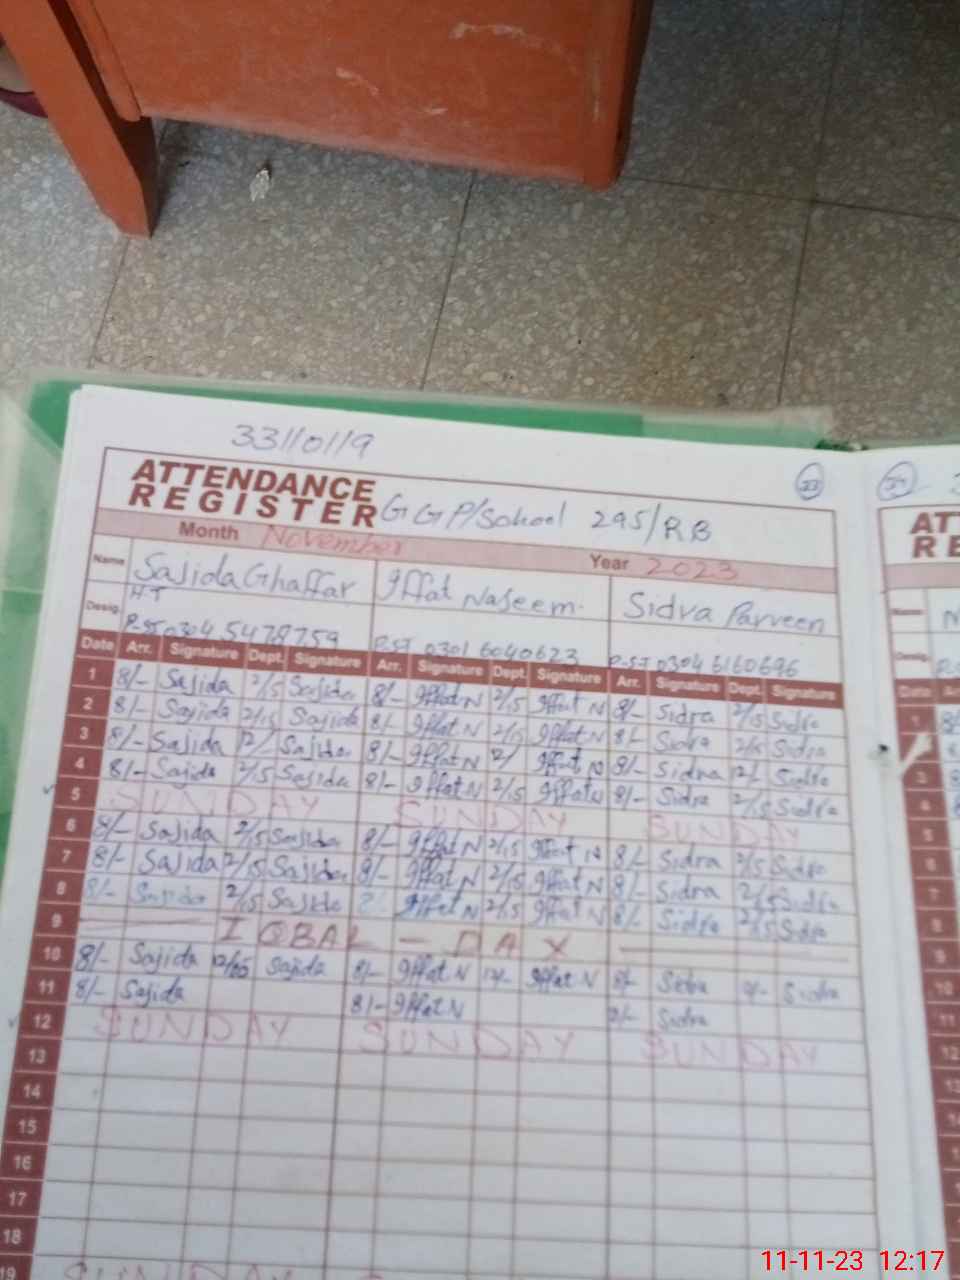 33110119
23
ATTENDANCE
REGISTER GGP/School 295/RB
Month November Year 2023
Name Sajida Ghaffar Iffat Naseem. Sidra Parveen
Desig. H.T
0304 5478759 P.S.T 0301 6040623 P.S.T 0304 6160696
Date Arr. Signature Dept. Signature Arr. Signature Dept. Signature Arr. Signature Dept. Signature
1 8/- Sajida 2/15 Sajida 8/- Iffat N 2/15 Iffat N 8/- Sidra 2/15 Sidra
2 8/- Sajida 2/15 Sajida 8/- Iffat N 2/15 Iffat N 8/- Sidra 2/15 Sidra
3 8/- Sajida 12/- Sajida 8/- Iffat N 12/ Iffat N 8/- Sidra 12/- Sidra
4 8/- Sajida 2/15 Sajida 8/- Iffat N 2/15 Iffat N 8/- Sidra 2/15 Sidra
5 SUNDAY SUNDAY SUNDAY
6 8/- Sajida 2/15 Sajida 8/- Iffat N 2/15 Iffat N 8/- Sidra 2/15 Sidra
7 8/- Sajida 2/15 Sajida 8/- Iffat N 2/15 Iffat N 8/- Sidra 2/15 Sidra
8 8/- Sajida 2/15 Sajida Iffat N 2/15 Iffat N 8/- Sidra 2/15 Sidra
9 IQBAL - DAY
10 8/- Sajida Sajida 8/- Iffat N 12/- Iffat N 8/- Sidra Sidra
11 8/- Sajida 8/- Iffat N 8/- Sidra
12 SUNDAY SUNDAY SUNDAY
13
14
15
16
17
18
19 SUNDAY
24
AT
RE
Name N
Desig.
Date
1 8/
3
4
5
6
7
8
9
10
11
12
13
11-11-23 12:17